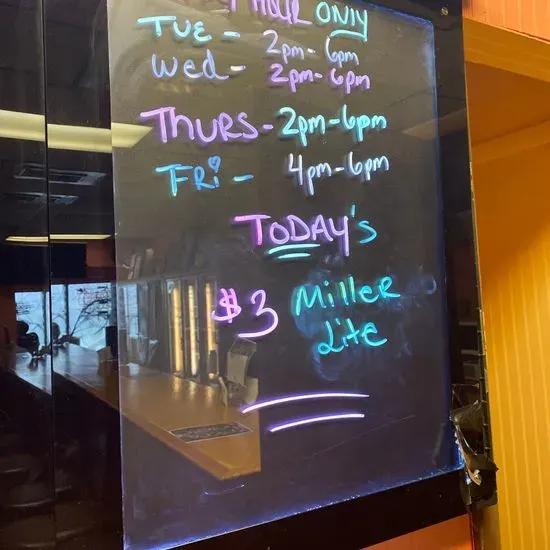 HOUR ONLY
TUE - 2pm - 6pm
Wed - 2pm - 6pm
THURS - 2pm - 6pm
FRi - 4pm - 6pm
TODAY's
$3 MilleR
Lite